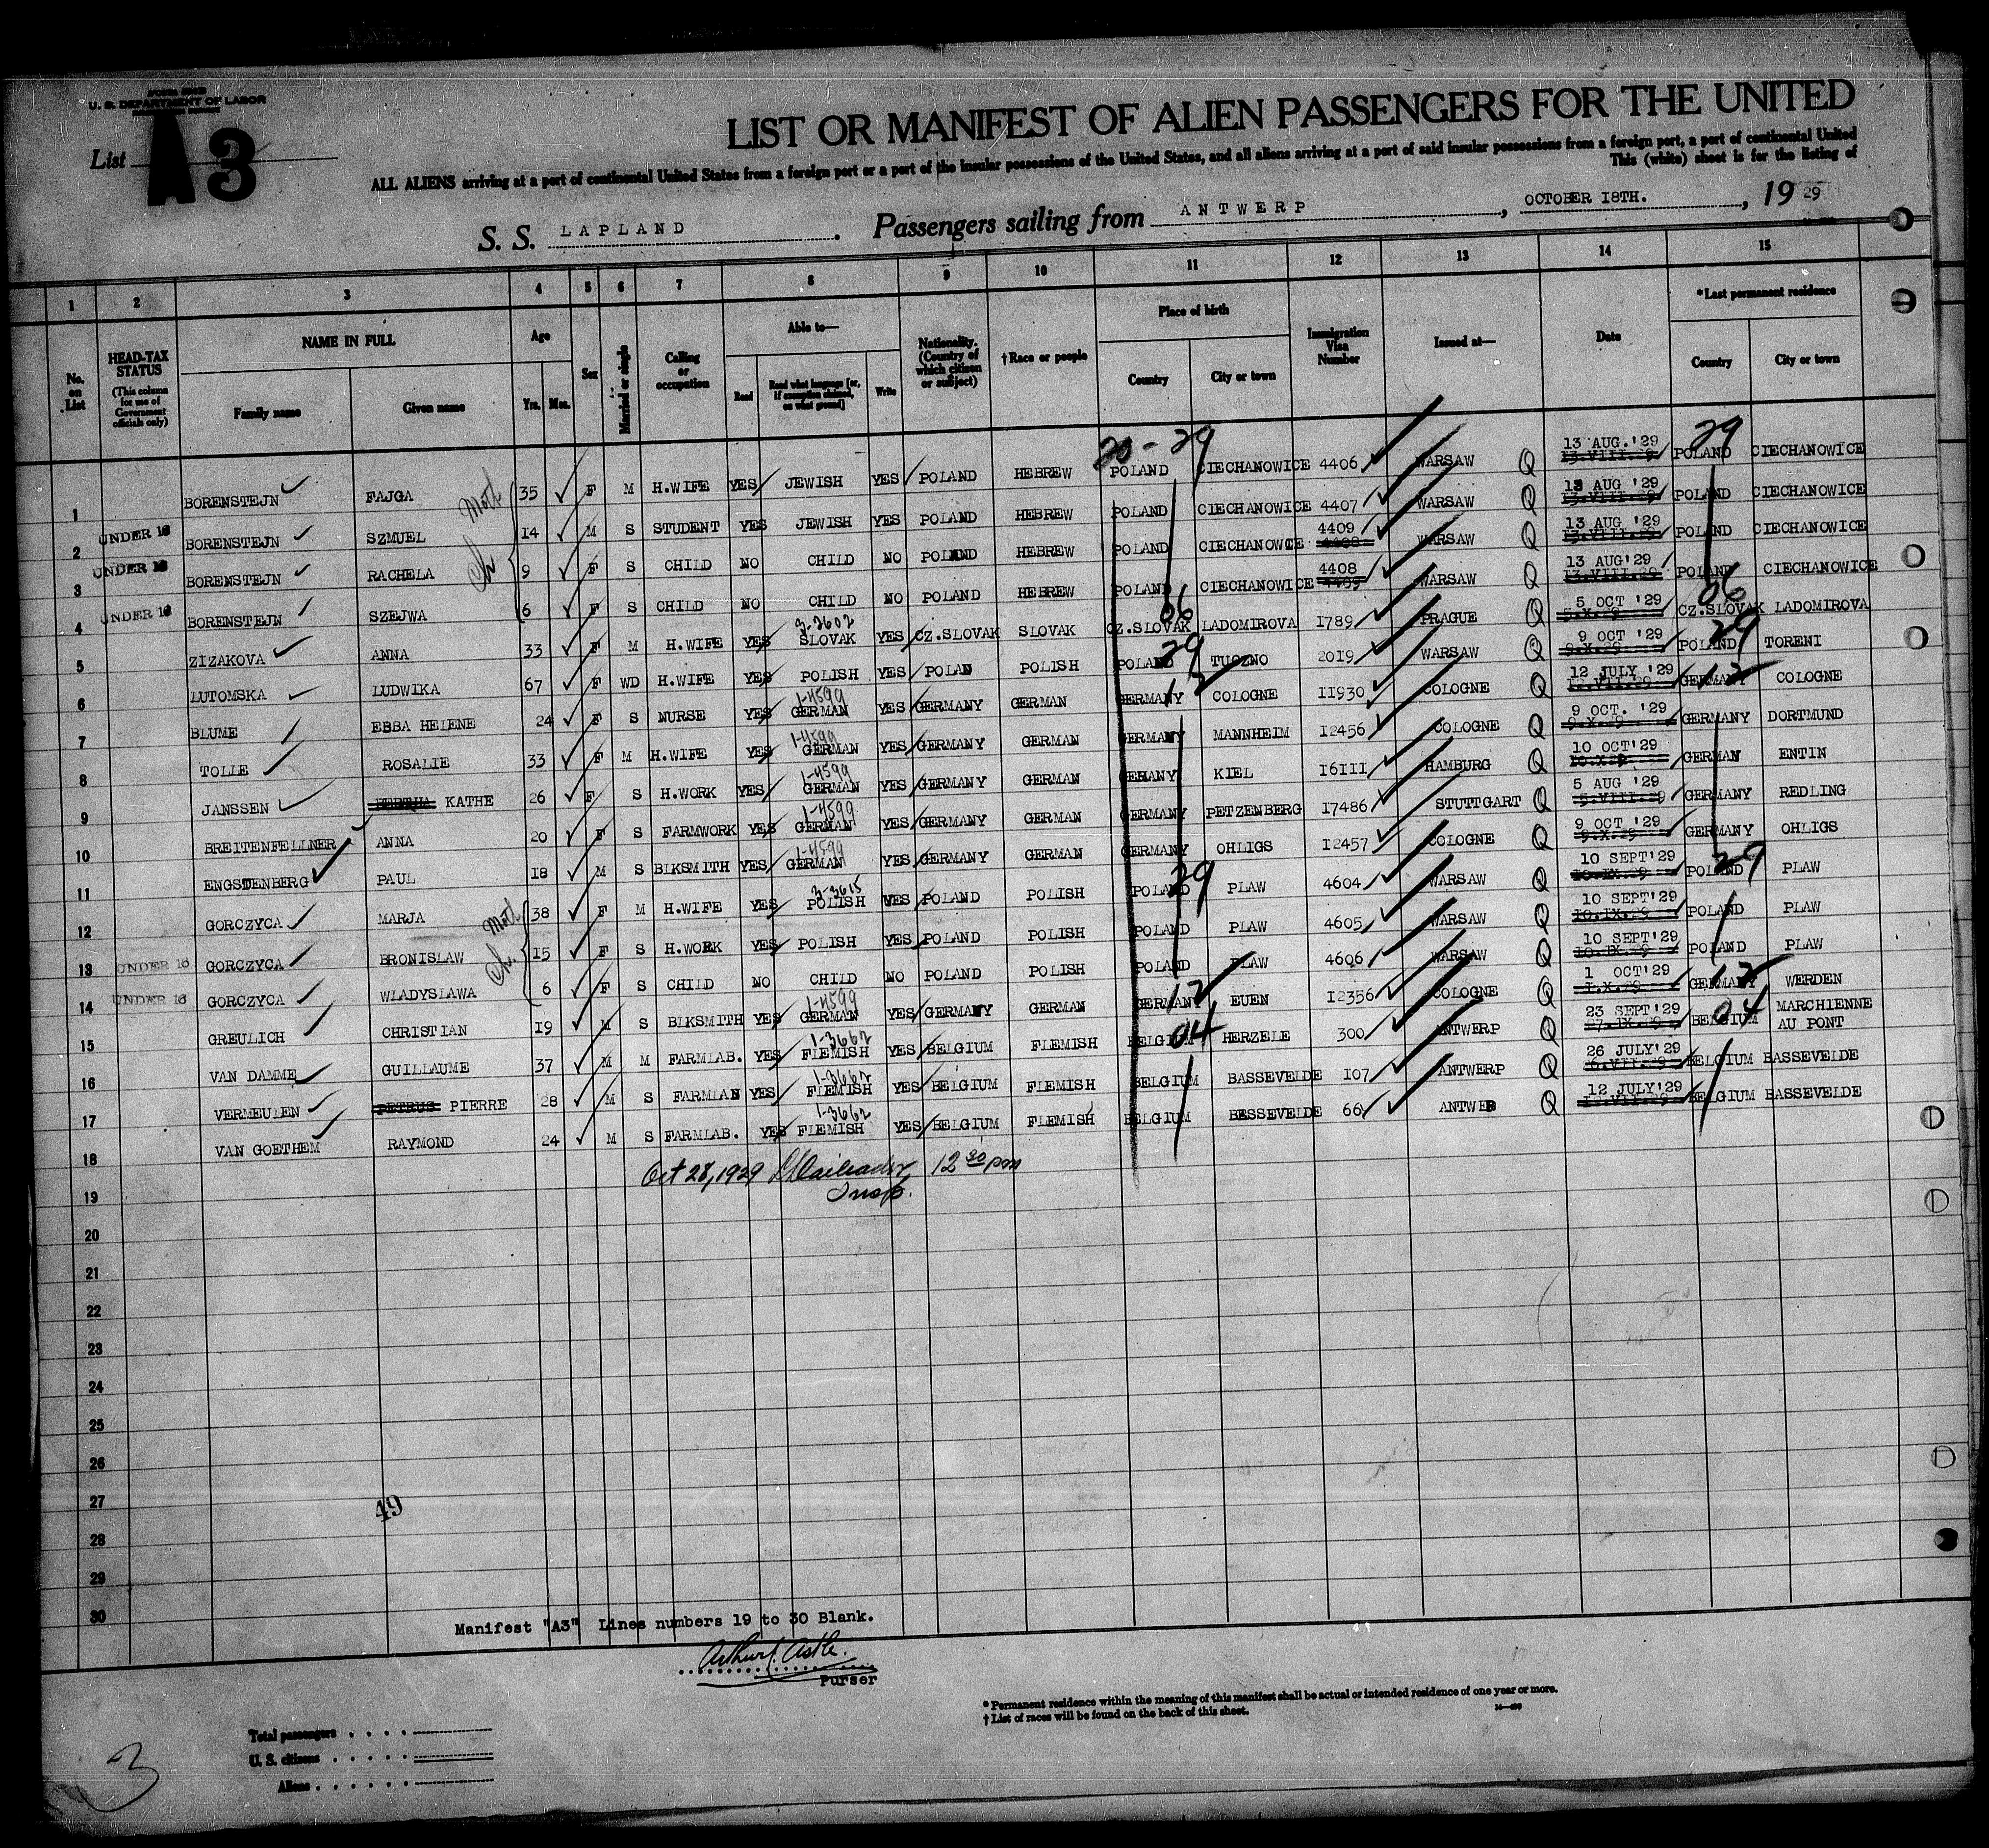 U. S. DEPARTMENT OF LABOR
List A3
LIST OR MANIFEST OF ALIEN PASSENGERS FOR THE UNITED
ALL ALIENS arriving at a port of continental United States from a foreign port or a port of the insular possessions of the United States, and all aliens arriving at a port of said insular possessions from a foreign port, a port of continental United
This (white) sheet is for the listing of
S. S. LAPLAND . Passengers sailing from ANTWERP , OCTOBER 18TH. , 19 29
1 2 3 4 5 6 7 8 9 10 11 12 13 14 15
No. on List
HEAD-TAX STATUS (This column for use of Government officials only)
NAME IN FULL Family name Given name
Age Yrs. Mos.
Sex
Married or single
Calling or occupation
Able to— Read Read what language [or, if exemption claimed, on what ground] Write
Nationality. (Country of which citizen or subject)
†Race or people
Place of birth Country City or town
Immigration Visa Number
Issued at—
Date
*Last permanent residence Country City or town
20-29 29
1 BORENSTEJN FAJGA 35 F M H.WIFE YES JEWISH YES POLAND HEBREW POLAND CIECHANOWICE 4406 WARSAW Q 13 AUG.'29 13.VIII.29 POLAND CIECHANOWICE
2 UNDER 16 BORENSTEJN SZMUEL 14 M S STUDENT YES JEWISH YES POLAND HEBREW POLAND CIECHANOWICE 4407 WARSAW Q 13 AUG '29 13.VIII.29 POLAND CIECHANOWICE
3 UNDER 16 BORENSTEJN RACHELA 9 F S CHILD NO CHILD NO POLAND HEBREW POLAND CIECHANOWCE 4409 4408 WARSAW Q 13 AUG '29 13.VIII.29 POLAND CIECHANOWICE
4 UNDER 16 BORENSTEJN SZEJWA 6 F S CHILD NO CHILD NO POLAND HEBREW POLAND CIECHANOWICE 4408 4409 WARSAW Q 13 AUG'29 13.VIII.29 POLAND CIECHANOWICE
5 ZIZAKOVA ANNA 33 F M H.WIFE YES 3-3602 SLOVAK YES CZ.SLOVAK SLOVAK 06 CZ.SLOVAK LADOMIROVA 1789 PRAGUE Q 5 OCT '29 5.X.29 06 CZ.SLOVAK LADOMIROVA
6 LUTOMSKA LUDWIKA 67 F WD H.WIFE YES POLISH YES POLAN POLISH 29 POLAND TUCZNO 2019 WARSAW Q 9 OCT '29 9.X.29 29 POLAND TORENI
7 BLUME EBBA HELENE 24 F S NURSE YES 1-4599 GERMAN YES GERMANY GERMAN 12 GERMANY COLOGNE 11930 COLOGNE Q 12 JULY '29 12.VII.29 12 GERMANY COLOGNE
8 TOLLE ROSALIE 33 F M H.WIFE YES 1-4599 GERMAN YES GERMANY GERMAN GERMANY MANNHEIM 12456 COLOGNE Q 9 OCT. '29 9.X.29 GERMANY DORTMUND
9 JANSSEN BERTHA KATHE 26 F S H.WORK YES 1-4599 GERMAN YES GERMANY GERMAN GEMANY KIEL 16111 HAMBURG Q 10 OCT'29 10.X.29 GERMAN ENTIN
10 BREITENFELLNER ANNA 20 F S FARMWORK YES 1-4599 GERMAN YES GERMANY GERMAN GERMANY PETZENBERG 17486 STUTTGART Q 5 AUG '29 5.VIII.29 GERMANY REDLING
11 ENGSTENBERG PAUL 18 M S BLKSMITH YES 1-4599 GERMAN YES GERMANY GERMAN GERMANY OHLIGS 12457 COLOGNE Q 9 OCT '29 9.X.29 GERMANY OHLIGS
12 GORCZYCA MARJA 38 F M H.WIFE YES 3-3615 POLISH YES POLAND POLISH 29 POLAND PLAW 4604 WARSAW Q 10 SEPT'29 10.IX.29 29 POLAND PLAW
13 UNDER 16 GORCZYCA BRONISLAW 15 F S H.WORK YES POLISH YES POLAND POLISH POLAND PLAW 4605 WARSAW Q 10 SEPT'29 10.IX.29 POLAND PLAW
14 UNDER 16 GORCZYCA WLADYSLAWA 6 F S CHILD NO CHILD NO POLAND POLISH POLAND PLAW 4606 WARSAW Q 10 SEPT'29 10.IX.29 POLAND PLAW
15 GREULICH CHRISTIAN 19 M S BLKSMITH YES 1-4599 GERMAN YES GERMANY GERMAN 12 GERMANY EUEN 12356 COLOGNE Q 1 OCT'29 1.X.29 12 GERMANY WERDEN
16 VAN DAMME GUILLAUME 37 M M FARMLAB. YES 1-3662 FLEMISH YES BELGIUM FLEMISH 04 BELGIUM HERZELE 300 ANTWERP Q 23 SEPT'29 04 BELGIUM MARCHIENNE AU PONT
17 VERMEULEN PETRUS PIERRE 28 M S FARMLAN YES 1-3662 FLEMISH YES BELGIUM FLEMISH BELGIUM BASSEVELDE 107 ANTWERP Q 26 JULY'29 BELGIUM BASSEVELDE
18 VAN GOETHEM RAYMOND 24 M S FARMLAB. YES 1-3662 FLEMISH YES BELGIUM FLEMISH BELGIUM BASSEVELDE 66 ANTWEP Q 12 JULY'29 BELGIUM BASSEVELDE
Moth
Ch
Moth
Ch.
19 Oct 28, 1929 12 30 pm
Insp.
20
21
22
23
24
25
26
27
49
28
29
30
Manifest "A3" Lines numbers 19 to 30 Blank.
Arthur J. Astle.
Purser
* Permanent residence within the meaning of this manifest shall be actual or intended residence of one year or more.
† List of races will be found on the back of this sheet.
Total passengers
U. S. citizens
Aliens
3